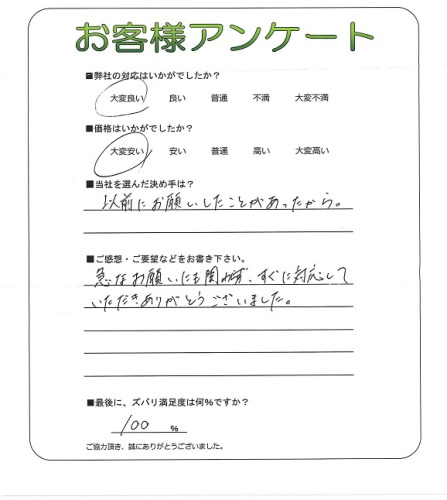 お客様アンケート
■弊社の対応はいかがでしたか?
大変良い 良い 普通 不満 大変不満
■価格はいかがでしたか?
大変安い 安い 普通 高い 大変高い
■当社を選んだ決め手は?
以前にお願いしたことがあったから。
■ご感想・ご要望などをお書き下さい。
急なお願いにも関わず、すぐに対応して
いただきありがとうございました。
■最後に、ズバリ満足度は何%ですか?
100 %
ご協力頂き、誠にありがとうございました。